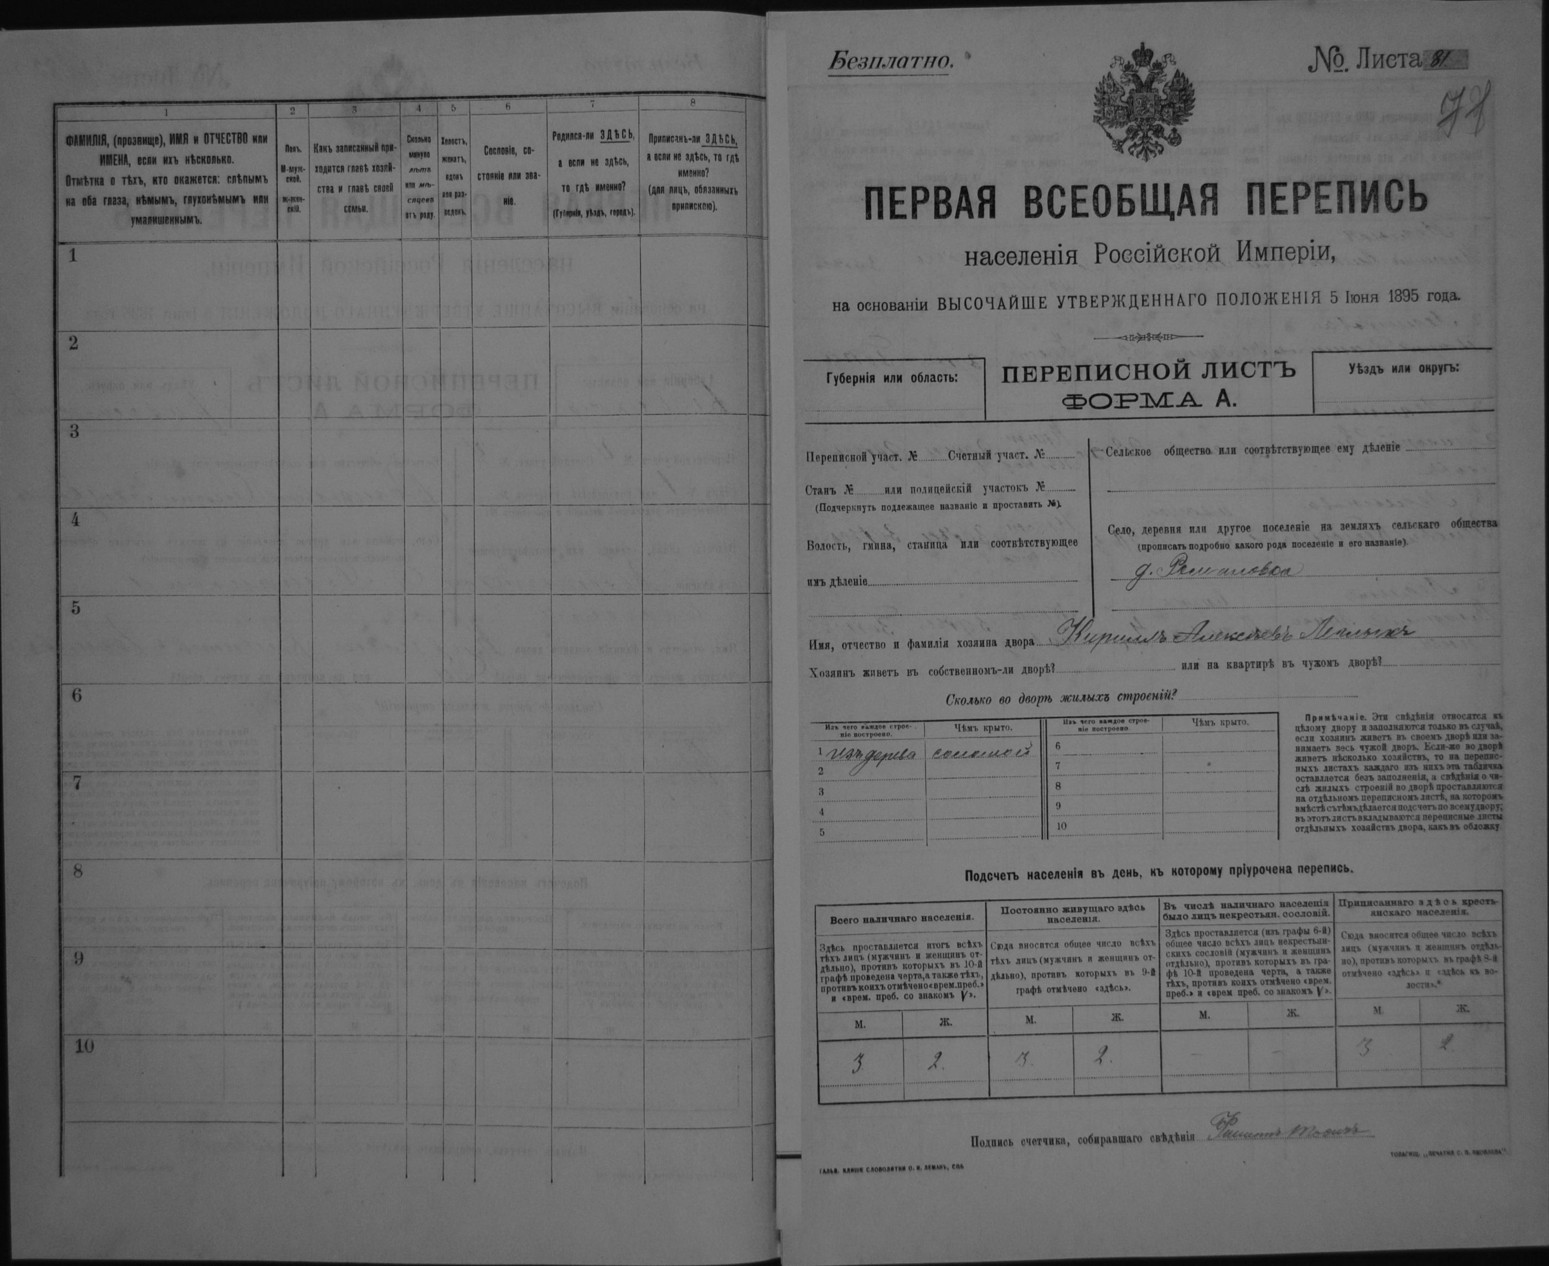 1
2
3
4
5
6
7
8
ФАМИЛІЯ, (прозвище), ИМЯ и ОТЧЕСТВО или
ИМЕНА, если ихъ нѣсколько.
Отмѣтка о тѣхъ, кто окажется: слѣпымъ
на оба глаза, нѣмымъ, глухонѣмымъ или
умалишеннымъ.
Полъ.
М-муж-
ской.
ж-жен-
скій.
Какъ записанный при-
ходится главѣ хозяй-
ства и главѣ своей
семьи.
Сколько
минуло
лѣтъ
или мѣ-
сяцевъ
отъ роду.
Холостъ,
женатъ,
вдовъ
или раз-
веденъ.
Сословіе, со-
стояніе или зва-
ніе.
Родился-ли ЗДѢСЬ,
а если не здѣсь,
то гдѣ именно?
(Губернія, уѣздъ, городъ).
Приписанъ-ли ЗДѢСЬ,
а если не здѣсь, то гдѣ
именно?
(для лицъ, обязанныхъ
припискою).
1
2
3
4
5
6
7
8
9
10
Безплатно.
№. Листа 81
ПЕРВАЯ ВСЕОБЩАЯ ПЕРЕПИСЬ
населенія Россійской Имперіи,
на основаніи ВЫСОЧАЙШЕ УТВЕРЖДЕННАГО ПОЛОЖЕНІЯ 5 Іюня 1895 года.
Губернія или область:
ПЕРЕПИСНОЙ ЛИСТЪ
ФОРМА А.
Уѣздъ или округъ:
Переписной участ. № Счетный участ. №
Станъ № или полицейскій участокъ №
(Подчеркнуть подлежащее названіе и проставить №).
Волость, гмина, станица или соотвѣтствующее
имъ дѣленіе
Сельское общество или соотвѣтствующее ему дѣленіе
Село, деревня или другое поселеніе на земляхъ сельскаго общества
(прописать подробно какого рода поселеніе и его названіе)
д. Романовка
Имя, отчество и фамилія хозяина двора Кириллъ Алексѣевъ
Хозяинъ живетъ въ собственномъ-ли дворѣ? или на квартирѣ въ чужомъ дворѣ?
Сколько во дворѣ жилыхъ строеній?
Изъ чего каждое строе-
ніе построено.
Чѣмъ крыто.
Изъ чего каждое строе-
ніе построено.
Чѣмъ крыто.
1 изъ дерева соломой
2
3
4
5
6
7
8
9
10
Примѣчаніе. Эти свѣдѣнія относятся къ
цѣлому двору и заполняются только въ случаѣ,
если хозяинъ живетъ въ своемъ дворѣ или за-
нимаетъ весь чужой дворъ. Если-же во дворѣ
живетъ нѣсколько хозяйствъ, то на перепис-
ныхъ листахъ каждаго изъ нихъ эта табличка
оставляется безъ заполненія, а свѣдѣнія о чи-
слѣ жилыхъ строеній во дворѣ проставляются
на отдѣльномъ переписномъ листѣ, на которомъ
вмѣстѣ съ тѣмъ дѣлается подсчетъ по всему двору;
въ этотъ листъ вкладываются переписные листы
отдѣльныхъ хозяйствъ двора, какъ въ обложку.
Подсчетъ населенія въ день, къ которому пріурочена перепись.
Всего наличнаго населенія.
Здѣсь проставляется итогъ всѣхъ
тѣхъ лицъ (мужчинъ и женщинъ от-
дѣльно), противъ которыхъ въ 10-й
графѣ проведена черта, а также тѣхъ,
противъ коихъ отмѣчено «врем. преб.»
и «врем. преб. со знакомъ V».
Постоянно живущаго здѣсь
населенія.
Сюда вносится общее число всѣхъ
тѣхъ лицъ (мужчинъ и женщинъ от-
дѣльно), противъ которыхъ въ 9-й
графѣ отмѣчено «здѣсь».
Въ числѣ наличнаго населенія
было лицъ некрестьян. сословій.
Здѣсь проставляется (изъ графы 6-й)
общее число всѣхъ лицъ некрестьян-
скихъ сословій (мужчинъ и женщинъ
отдѣльно), противъ которыхъ въ гра-
фѣ 10-й проведена черта, а также
тѣхъ, противъ коихъ отмѣчено «врем.
преб.» и «врем преб. со знакомъ V».
Приписаннаго здѣсь кресть-
янскаго населенія.
Сюда вносится общее число всѣхъ
лицъ (мужчинъ и женщинъ отдѣль-
но), противъ которыхъ въ графѣ 8-й
отмѣчено «здѣсь» и «здѣсь въ во-
лости».
М. Ж. М. Ж. М. Ж. М. Ж.
3 2. 3. 2. - - 3 2
Подпись счетчика, собиравшаго свѣдѣнія